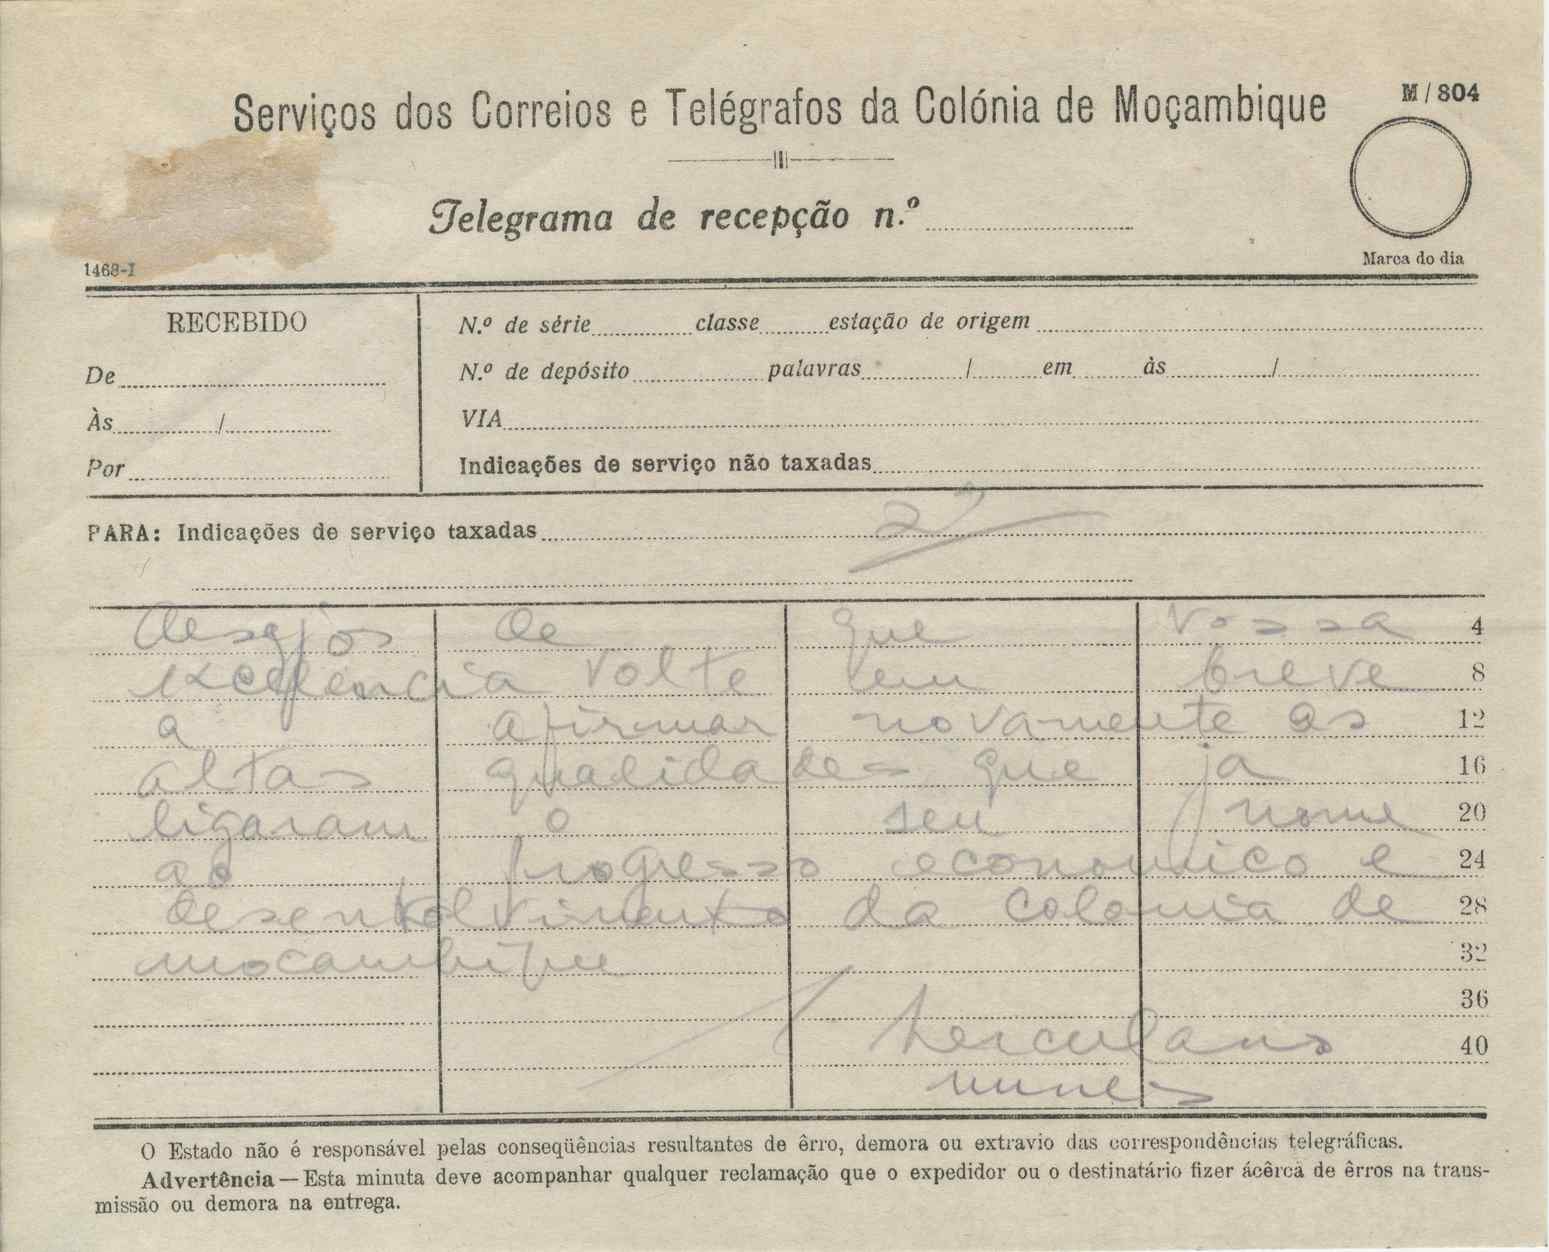 M/804
Serviços dos Correios e Telégrafos da Colónia de Moçambique
Telegrama de recepção n.º
Marca do dia
1468-I
RECEBIDO
De
Às /
Por
N.º de série classe estação de origem
N.º de depósito palavras / em às /
VIA
Indicações de serviço não taxadas
PARA: Indicações de serviço taxadas
2
desejos de que vossa 4
excelencia volte em breve 8
a afirmar novamente as 12
altas qualidades que ja 16
ligaram o seu nome 20
ao progresso economico e 24
desenvolvimento da colonia de 28
mocambique 32
36
herculano 40
nunes
O Estado não é responsável pelas conseqüências resultantes de êrro, demora ou extravio das correspondências telegráficas.
Advertência — Esta minuta deve acompanhar qualquer reclamação que o expedidor ou o destinatário fizer ácêrca de êrros na trans-
missão ou demora na entrega.